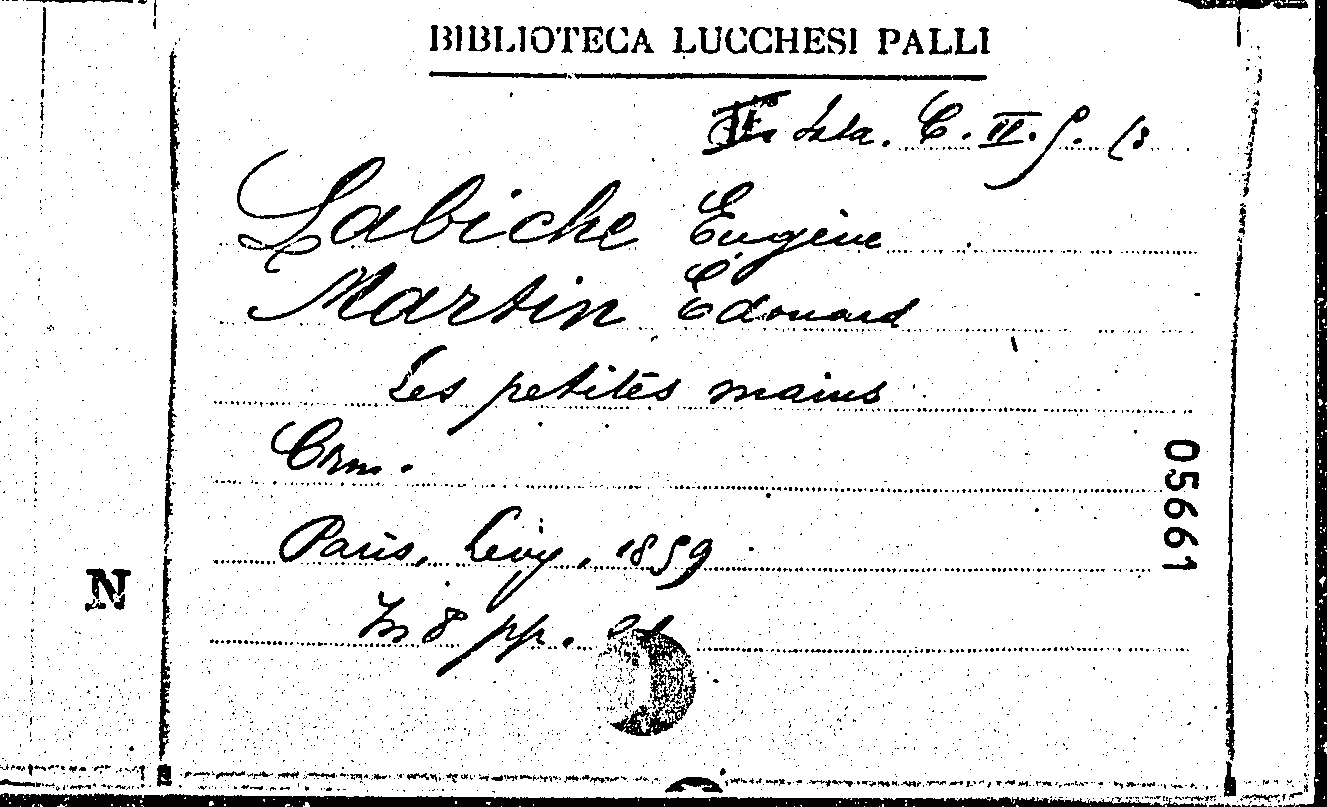 BIBLIOTECA LUCCHESI PALLI
Sala. C. II. 9. (3
Labiche Eugène
Martin Edouard
Les petites mains
Com.
Paris, Lévy, 1859
In 8 pp.
05661
N